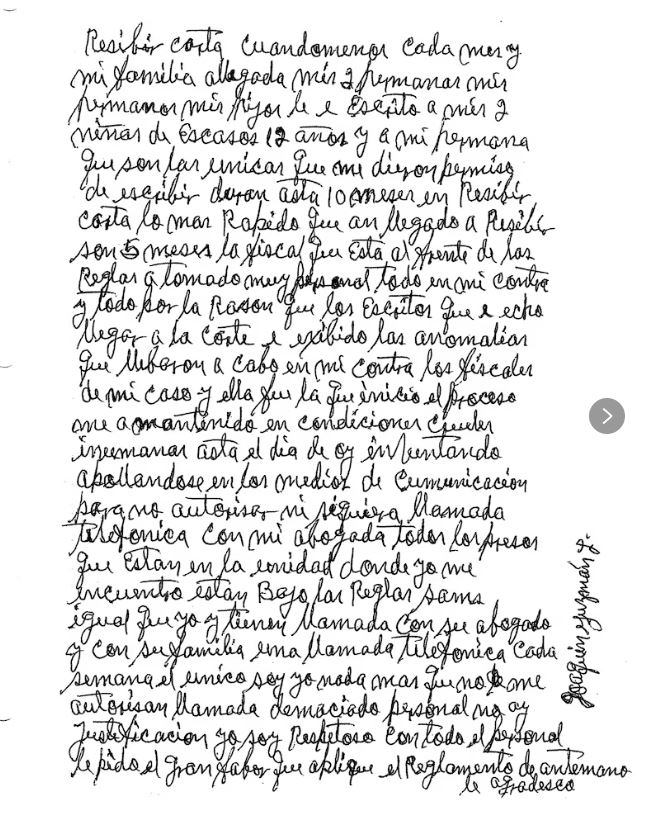 Resibir carta cuandomenos cada mes y
mi familia allegada mis 2 hermanas mis
hermanos mis hijos le e Escrito a mis 2
niñas de Escasos 12 años y a mi hermana
que son las unicas que me dieron permiso
de escribir duran asta 10 meses en Resibir
carta lo mas Rapido que an llegado a Resibir
son 5 meses la fiscal que Esta al frente de las
Reglas a tomado muy personal todo en mi contra
y todo por la Rason que los Escritos que e echo
llegar a la Corte e exibido las anomalias
que llebaron a cabo en mi contra los fiscales
de mi caso y ella fue la que inicio el proceso
me a mantenido en condiciones crueles
inumanas asta el dia de oy inbentando
apollandose en los medios de Cumunicación
para no autorisar ni siquiera llamada
telefonica con mi abogada todos los presos
que Estan en la unidad donde yo me
encuentro estan Bajo las Reglas sams
igual que yo y tienen llamada con su abogado
y con su familia una llamada telefonica cada
semana el unico soy yo nada mas que no me
autorisan llamada demaciado personal no ay
Justificacion yo soy Respetoso con todo el personal
le pido el Gran fabor que aplique el Reglamento de antemano
le agradesco
Joaquin guzmán L.